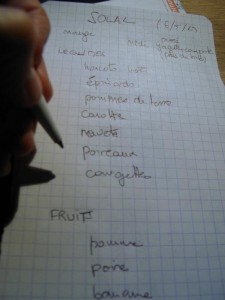 SOLAL
mange
LEGUMES
haricots vert
épinards
pommes de terre
carotte
navets
poireaux
courgettes
FRUIT
pomme
poire
banane